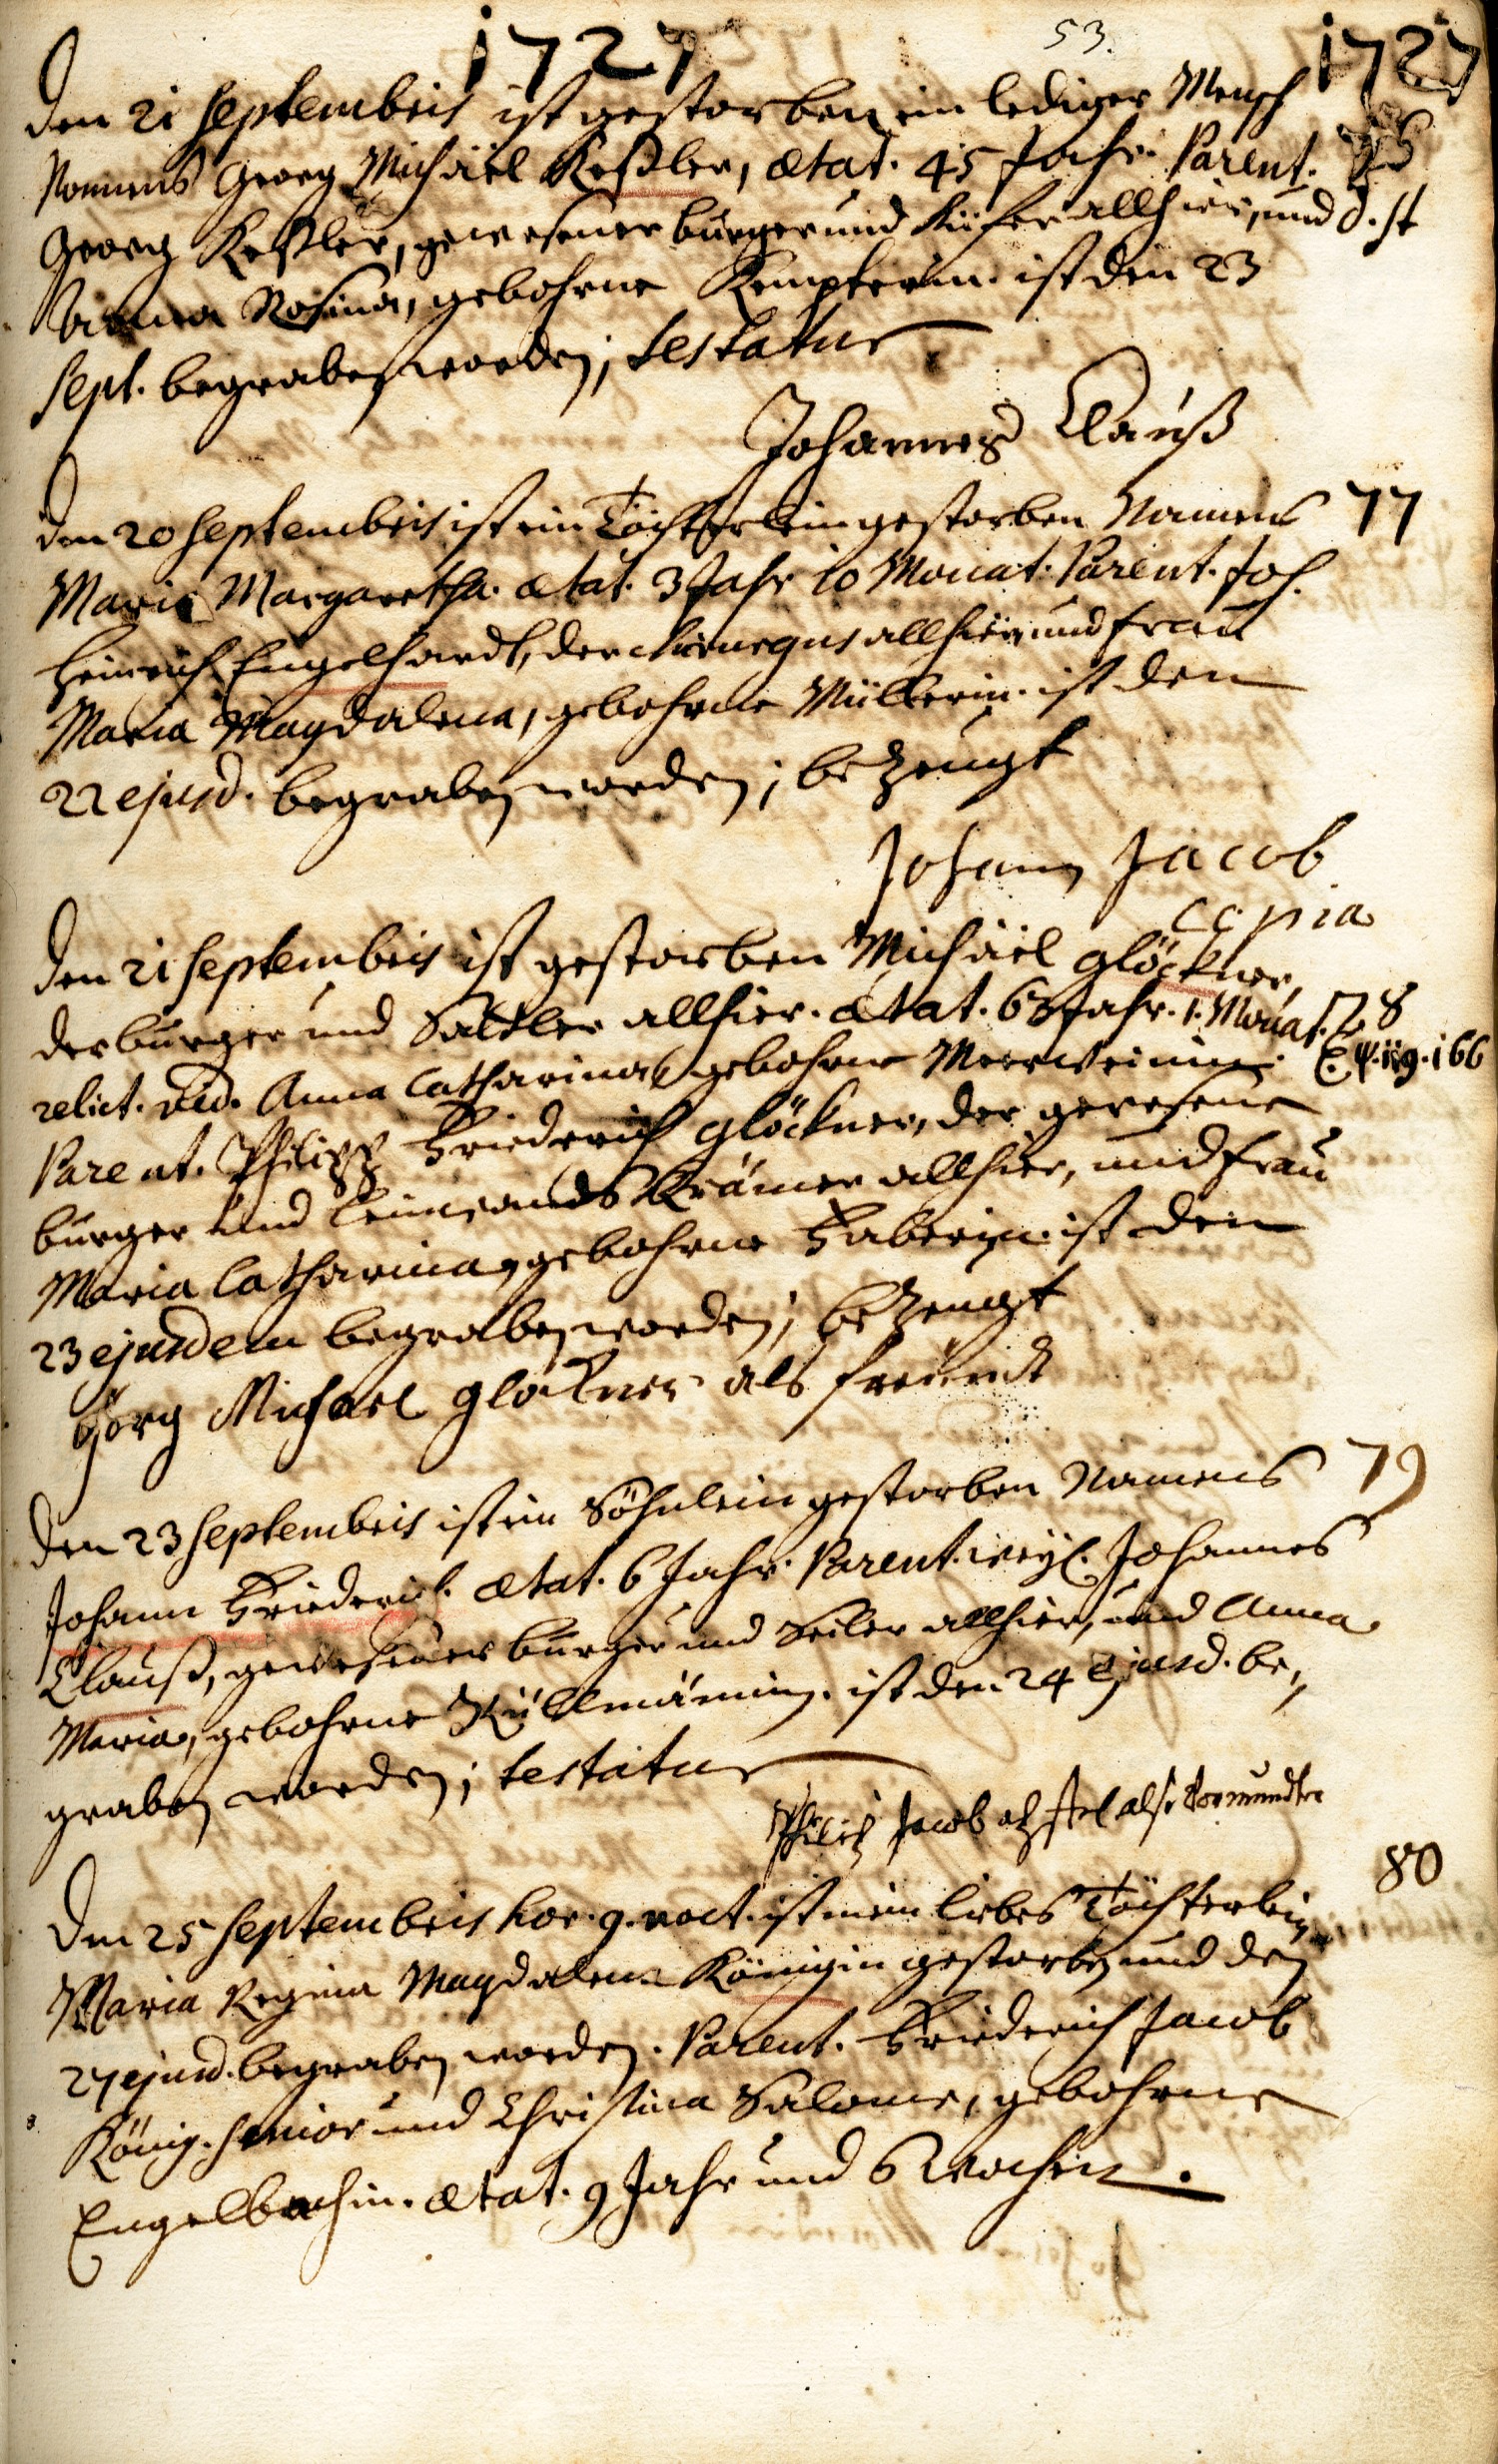 1727 53. 1727
Den 21 Septembris ist gestorben ein lediger Mensch
Namens Georg Michäel Keßler, ætat. 45 Jahr. Parent. 76
Georg Keßler, gewesener burger und Küfer allhier, und d. st
Anna Rosina, gebohrne Kempterin. ist den 23
Sept. begraben worden; testatur
Johannes Clauß
Den 20 Septembris ist ein Töchterlein gestorben Namens 77
Maria Margaretha. ætat. 3 Jahr 10 Monat. Parent. Joh.
Heinrich Engelhardt, der chirurgus allhier, und Frau
Maria Magdalena, gebohrne Müllerin. ist den
22 ejusd. begraben worden; bezeugt
Johann Jacob
Copia
Den 21 Septembris ist gestorben Michäel Glöckner,
der burger und Sattler allhier. ætat. 63 Jahr. 1. Monat. 78
relict. vid. Anna Catharina gebohrne Meerweinin. 166
Parent. Philipp Friederich Glöckner, der gewesene
burger und Leinwands Krämer allhier, und Frau
Maria Catharina, gebohrne Faberin. ist den
23 ejusdem begraben worden; bezeugt
Görg Michael Glöckner als freundt
Den 23 Septembris ist ein Söhnlein gestorben Namens 79
Johann Friederich. ætat. 6 Jahr. Parent. weyl. Johannes
Clauß, gewesener burger und Seiler allhier, und Anna
Maria, gebohrne Küllmännin. ist den 24 ejusd. be,
graben worden; testatur
Philip Jacob als Vormundter
80
Den 25 Septembris hor. 9. noct. ist mein liebes Töchterlein
Maria Regina Magdalena Königin gestorben und den
27 ejusd. begraben worden. Parent. Friederich Jacob
König. Senior und Christina Salome, gebohrne
Engelbachin. ætat. 9 Jahr und 6 Wochen.